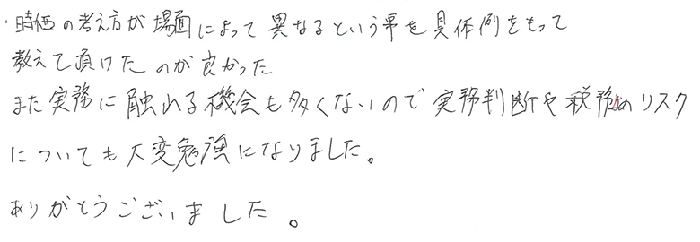 ・時価の考え方が場面によって異なるという事を具体例をもって
教えて頂けたのが良かった
また実務に触れる機会も多くないので実務判断や税務のリスク
についても大変勉強になりました。
ありがとうございました。